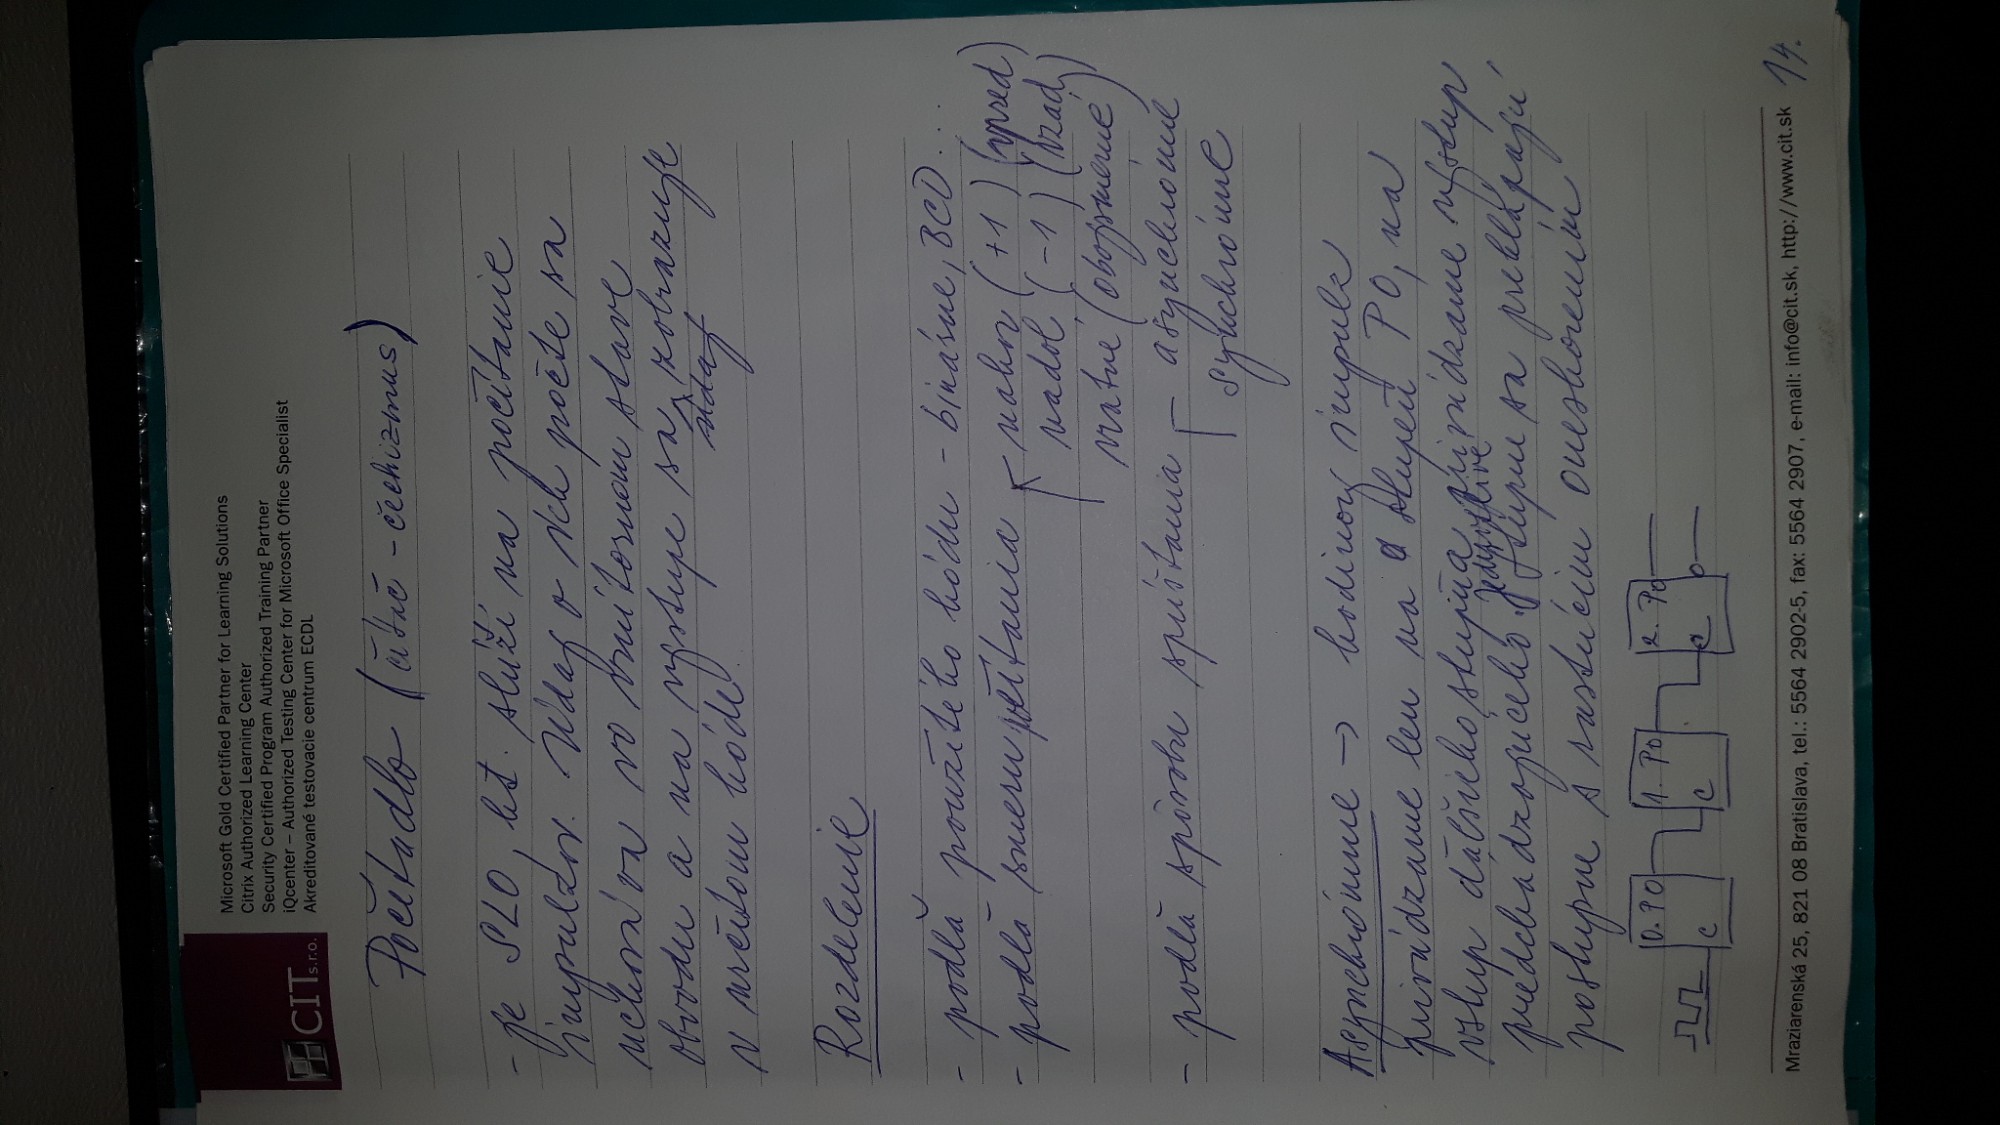 Microsoft Gold Certified Partner for Learning Solutions
Citrix Authorized Learning Center
Security Certified Program Authorized Training Partner
iQcenter – Authorized Testing Center for Microsoft Office Specialist
Akreditované testovacie centrum ECDL
CIT s.r.o.
Počítadlo (čítač – čechizmus)
- je SLO, kt. slúži na počítanie
impulzov. Údaj o ich počte sa
uchováva vo vnútornom stave
obvodu a na výstupe sa zobrazuje
údaj
v určitom kóde.
Rozdelenie
- podľa použitého kódu – binárne, BCD...
- podľa smeru počítania – nahor (+1) (vpred)
nadol (-1) (vzad)
vratné (obojsmerné)
- podľa spôsobu spúšťania – asynchrónne
synchrónne
Asynchrónne → hodinový impulz
privádzame len na 0 stupeň PO, na
vstup ďalšieho stupňa privádzame výstup
jednotlivé
predchádzajúceho. stupne sa preklápajú
postupne s rastúcim oneskorením
0. PO 1. PO 2. PO
C C C
Mraziarenská 25, 821 08 Bratislava, tel.: 5564 2902-5, fax: 5564 2907, e-mail: info@cit.sk, http://www.cit.sk
14.